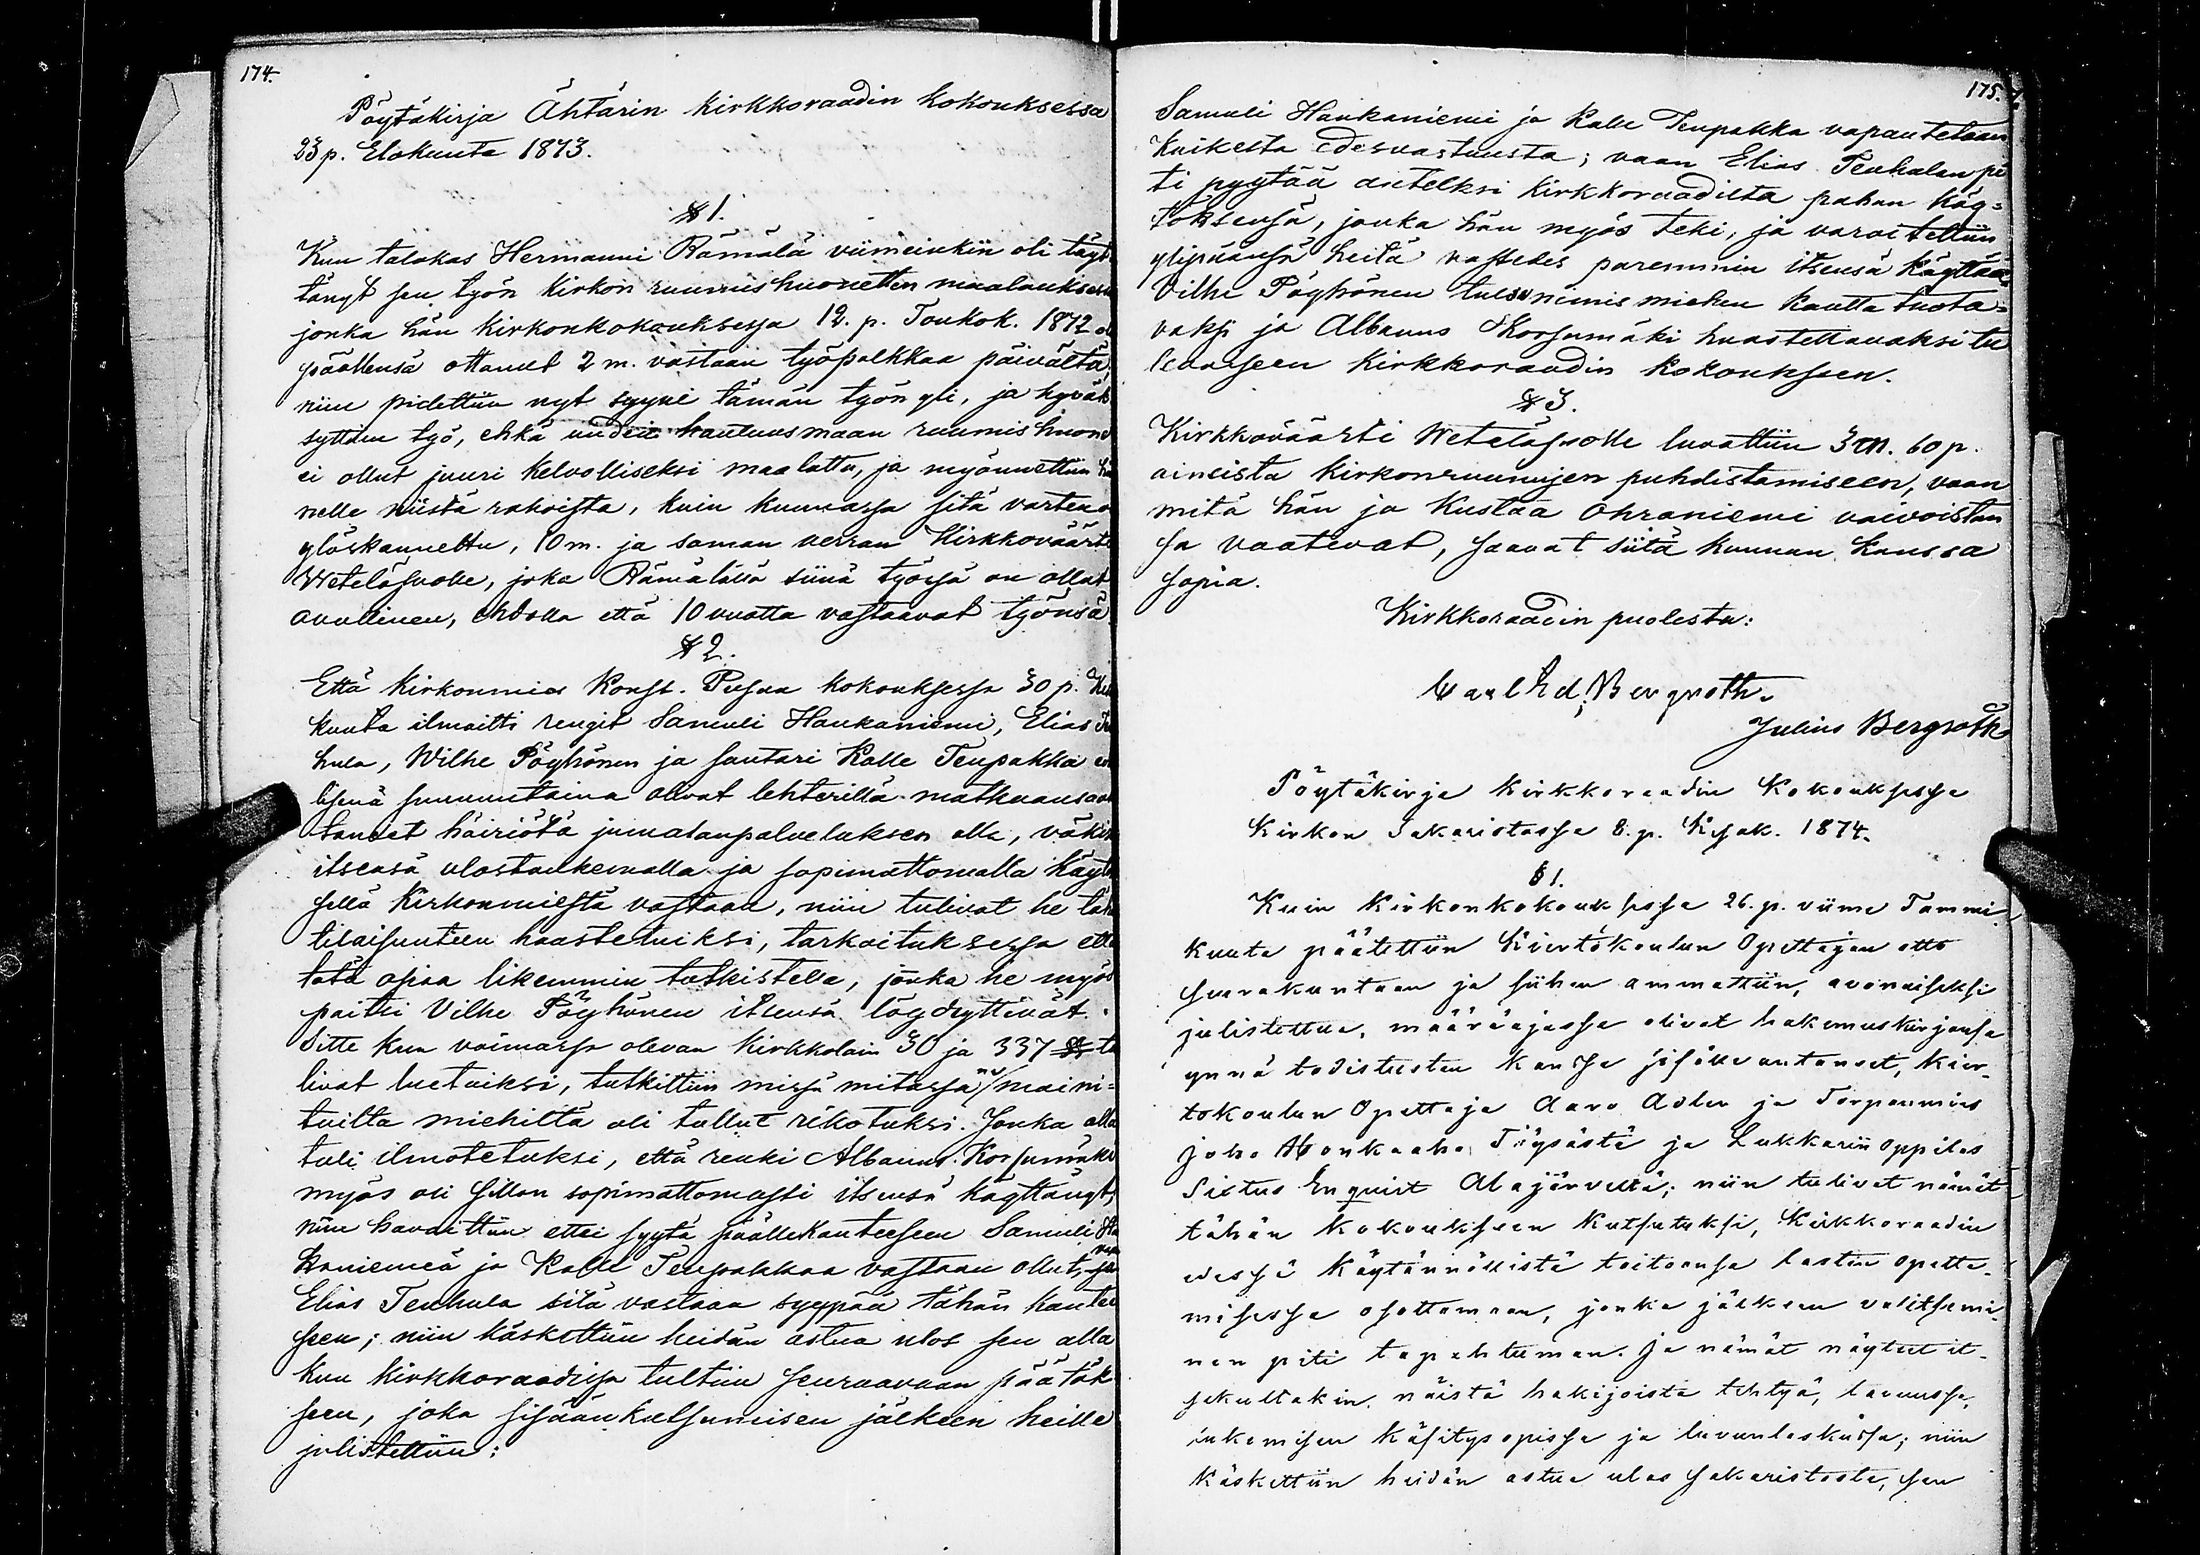 174.
Pöytäkirja Ähtärin Kirkkoraadin kokouksessa
23 p. Elokuuta 1873.
§ 1.
Kun talokas Hermanni Rämälä viimeinkin oli täyt
tänyt sen työn kirkon ruumishuonetten maalauksesta
jonka hän kirkonkokouksessa 12. p. Toukok. 1872
päällensä ottanut 2 m. vastaan työpalkkaa päivältä,
niin pidettiin nyt syyni tämän työn yli, ja hyväk
syttiin työ, ehkä uuden hautuusmaan ruumishuone
ei ollut juuri kelvolliseksi maalattu, ja myönnettiin hä
nelle niistä rahoista, kuin kunnassa sitä varten
ylöskannettu, 10 m. ja saman verran Kirkkoväärti
Weteläsuolle, joka Rämälällä siinä työssä on ollut
avullinen, ehdolla että 10 vuotta vastaavat työnsä.
§ 2.
Että Kirkonmies Konst. Pusaa kokouksessa 30 p.
kuuta ilmoitti rengit Samuli Haukaniemi, Elias Te
hula, Wilhe Pöyhönen ja sautari Kalle Teupakka
lisenä sunnuntaina olivat lehterillä matkaansaat
taneet häiriötä jumalanpalveluksen alla, väkisin
itseänsä ulostunkemalla ja sopimattomalla käytö
sellä Kirkonmiestä vastaan, niin tulivat he tähän
tilaisuuteen haastetuiksi, tarkoituksessa että
tätä asiaa likemmin tutkistella, jonka he myös
paitsi Vilhe Pöyhönen itsensä löydyttivät.
Sitte kun voimassa olevan Kirkkolain 30 ja 337 § tu
livat luetuiksi, tutkittiin missä mitassa nu/maini-
tuilta miehiltä oli tullut rikotuksi. Jonka alla
tuli ilmotetuksi, että renki Albanus Korsumäki
myös oli silloin sopimattomasti itsensä käyttänyt,
niin havaittiin ettei syytä päällekanteeseen Samuli Ha
kaniemeä ja Kalle Teupakkaa vastaan ollut, vaan
Elias Teuhula sitä vastaan syypää tähän kantee
seen; niin käskettiin heidän astua ulos sen alla
kun kirkkoraadissa tultiin seuraavaan päätök
seen, joka sisäänkutsumisen jälkeen heille
julistettiin:
175.
Samuli Haukaniemi ja Kalle Teupakka vapautetaan
kaikesta edesvastuusta; vaan Elias Teuhulan pi
ti pyytää anteeksi Kirkkoraadilta pahan käy-
töksensä, jonka hän myös teki, ja varoitettiin
ylipäänsä heitä vastedes paremmin itsensä käyttää
Vilhe Pöyhönen tulee nimismiehen kautta tuota-
vaksi ja Albanus Korsumäki haastettavaksi tu
levaiseen Kirkkoraadin kokoukseen.
§ 3.
Kirkkoväärti Weteläsuolle luvattiin 3 m. 60 p.
aineista kirkonruunujen puhdistamiseen, vaan
mitä hän ja Kustaa Ohraniemi vaivoistan
sa vaativat, saavat siitä kunnan kanssa
sopia.
Kirkkoraadin puolesta:
Carl Ed. Bergroth.
Julius Bergroth.
Pöytäkirja Kirkkoraadin Kokouksessa
Kirkon Sakaristossa 8. p. Kesäk. 1874.
§ 1.
Kuin Kirkonkokouksessa 26. p. viime Tammi
kuuta päätettiin Kiertokoulun Opettajan otto
seurakuntaan ja siihen ammattiin, avonaiseksi
julistettua, määräajassa olivat hakemuskirjansa
ynnä todistusten kanssa sisälle antaneet, kier-
tokoulun Opettaja Aaro Adler ja Torpanmies
Joho Honkaaho Töysästä ja Lukkarin oppilas
Sixtus Enquist Alajärveltä; niin tulivat nämät
tähän Kokoukseen kutsutuksi, Kirkkoraadin
edessä käytännöllistä taitoansa lasten opetta-
misessa osottamaan, jonka jälkeen valitsemi-
nen piti tapahtuman. Ja nämät näytteet it-
sekultakin näistä hakijoista tehtyä, laulussa,
lukemisen käsitysopissa ja luvunlaskussa; niin
käskettiin heidän astua ulos sakaristosta, sen